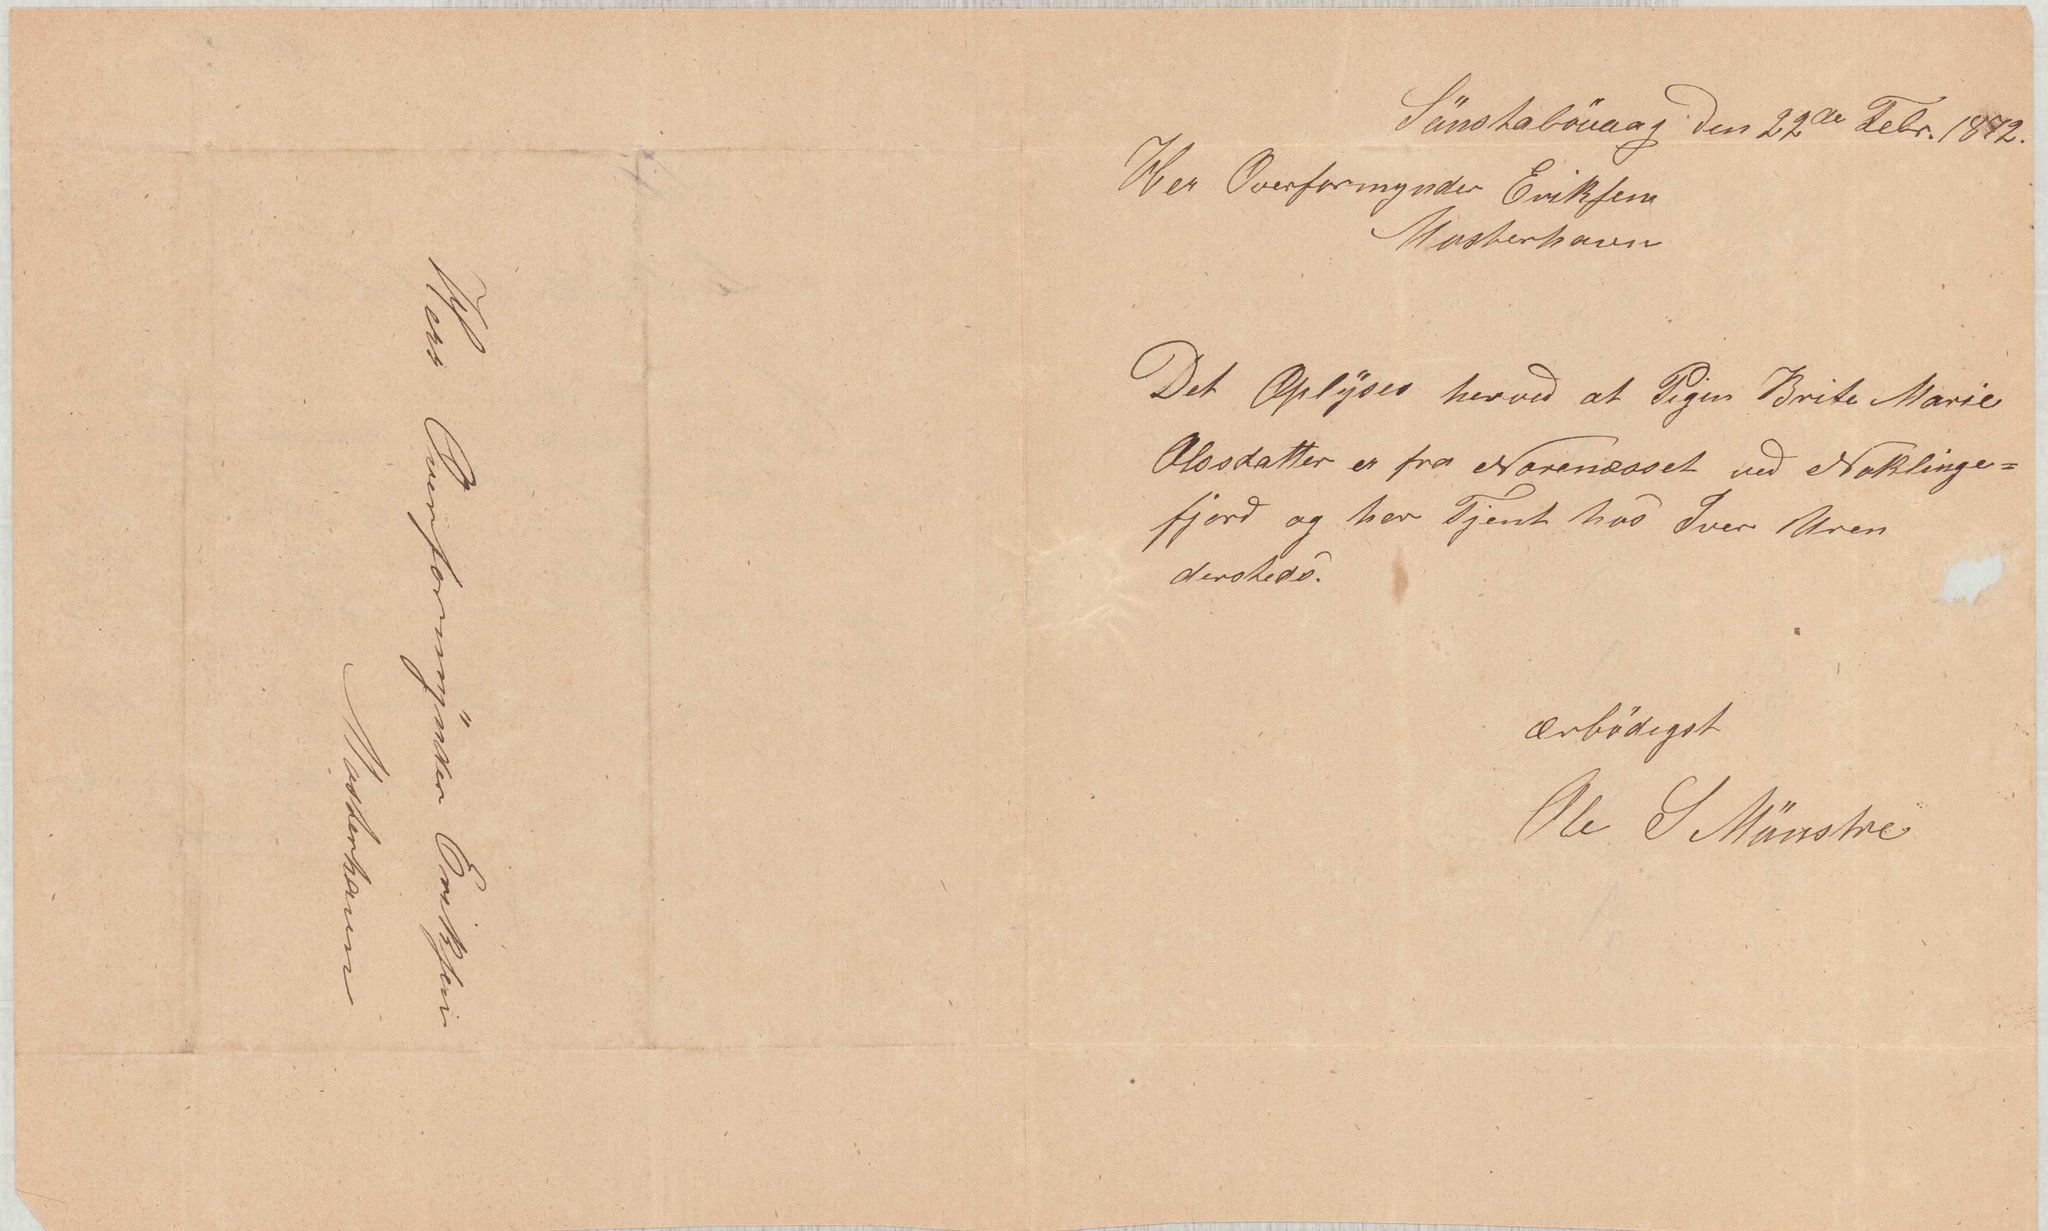 Sönstabövaag den 22de Febr. 1872.
Her Overformynder Eriksen
Mosterhavn
Det Oplÿses herved at Pigen Brite Marie
Olsdatter er fra Norenæsset ved Noklinge=
fjord og her Tjent hos Iver Uren
dersteds.
ærbödigst
Ole S Mönstre
Herr Overformÿnder Eriksen
Mosterhavn